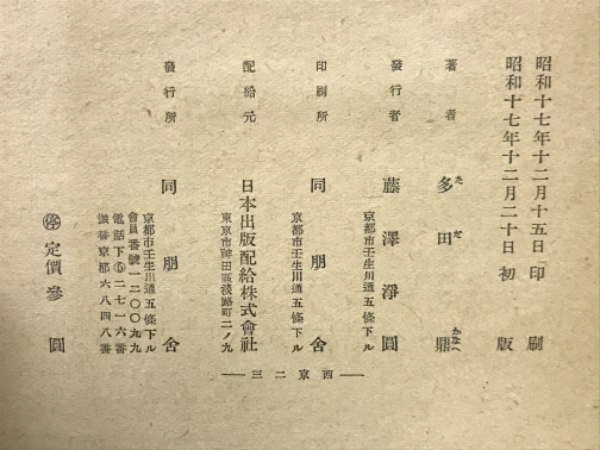 昭和十七年十二月十五日印刷
昭和十七年十二月二十日初版
著者 多田鼎
ただ かなへ
發行者 藤澤淨圓
京都市壬生川通五條下ル
印刷所 同朋舍
京都市壬生川通五條下ル
配給元 日本出版配給株式會社
東京市神田區淡路町二ノ九
發行所 同朋舍
京都市壬生川通五條下ル
會員番號一二〇〇九九
電話下⑤二七一六番
振替京都六八四八番
㊡定價參圓
西京二三